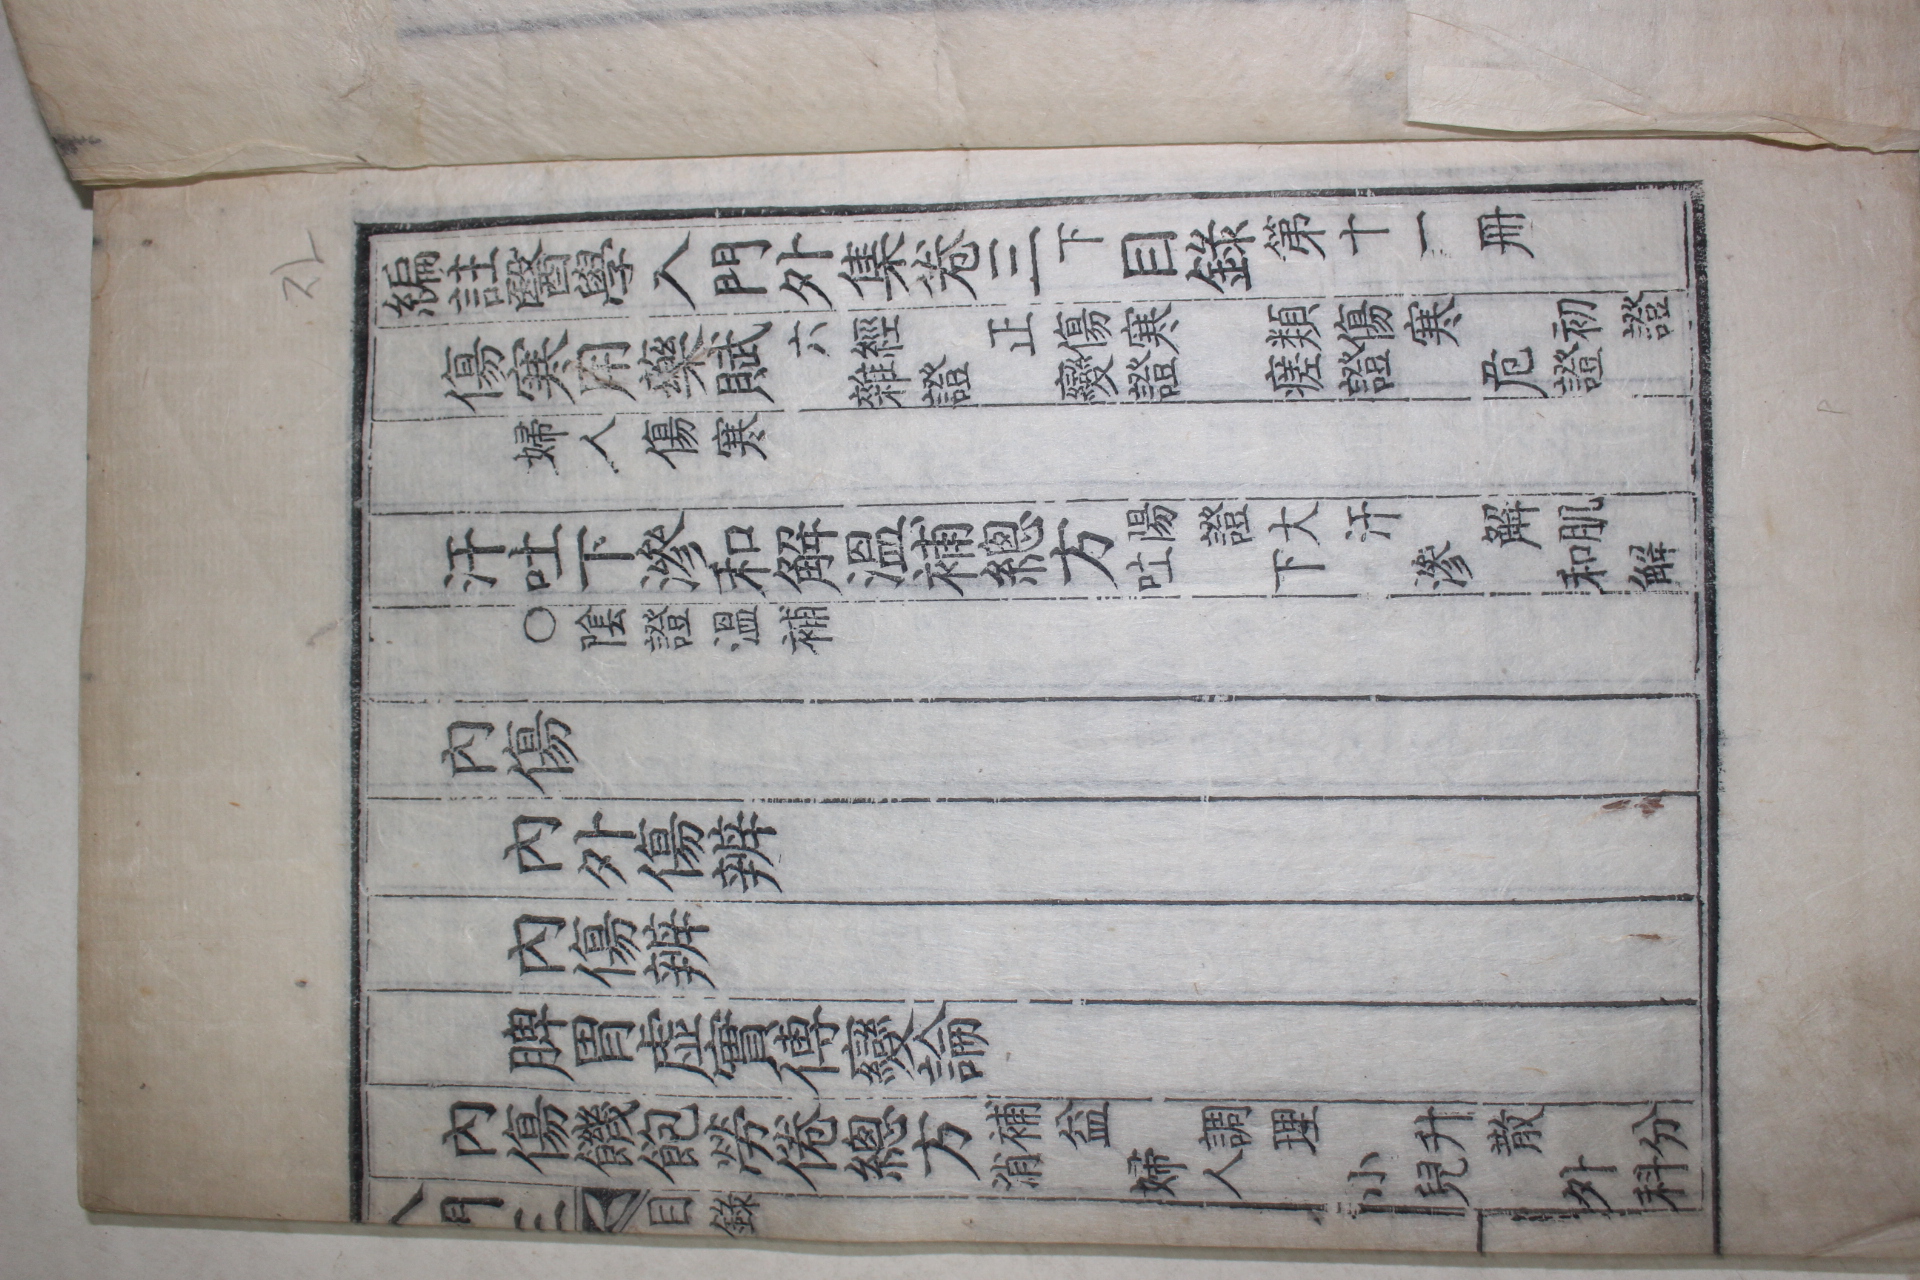 編註醫學入門外集卷三下目錄第十一冊
傷寒用藥賦
六經 正傷寒 類傷寒 初證
雜證 變證 瘥證 危證
婦人傷寒
汗吐下滲和解溫補總方
陽證大汗 解肌
吐 下 滲 和解
○陰證溫補
內傷
內外傷辨
內傷辨
脾胃虛實傳變論
內傷饑飽勞倦總方
補益 調理 升散 分
消 婦人 小兒 外科
入門 三 目錄